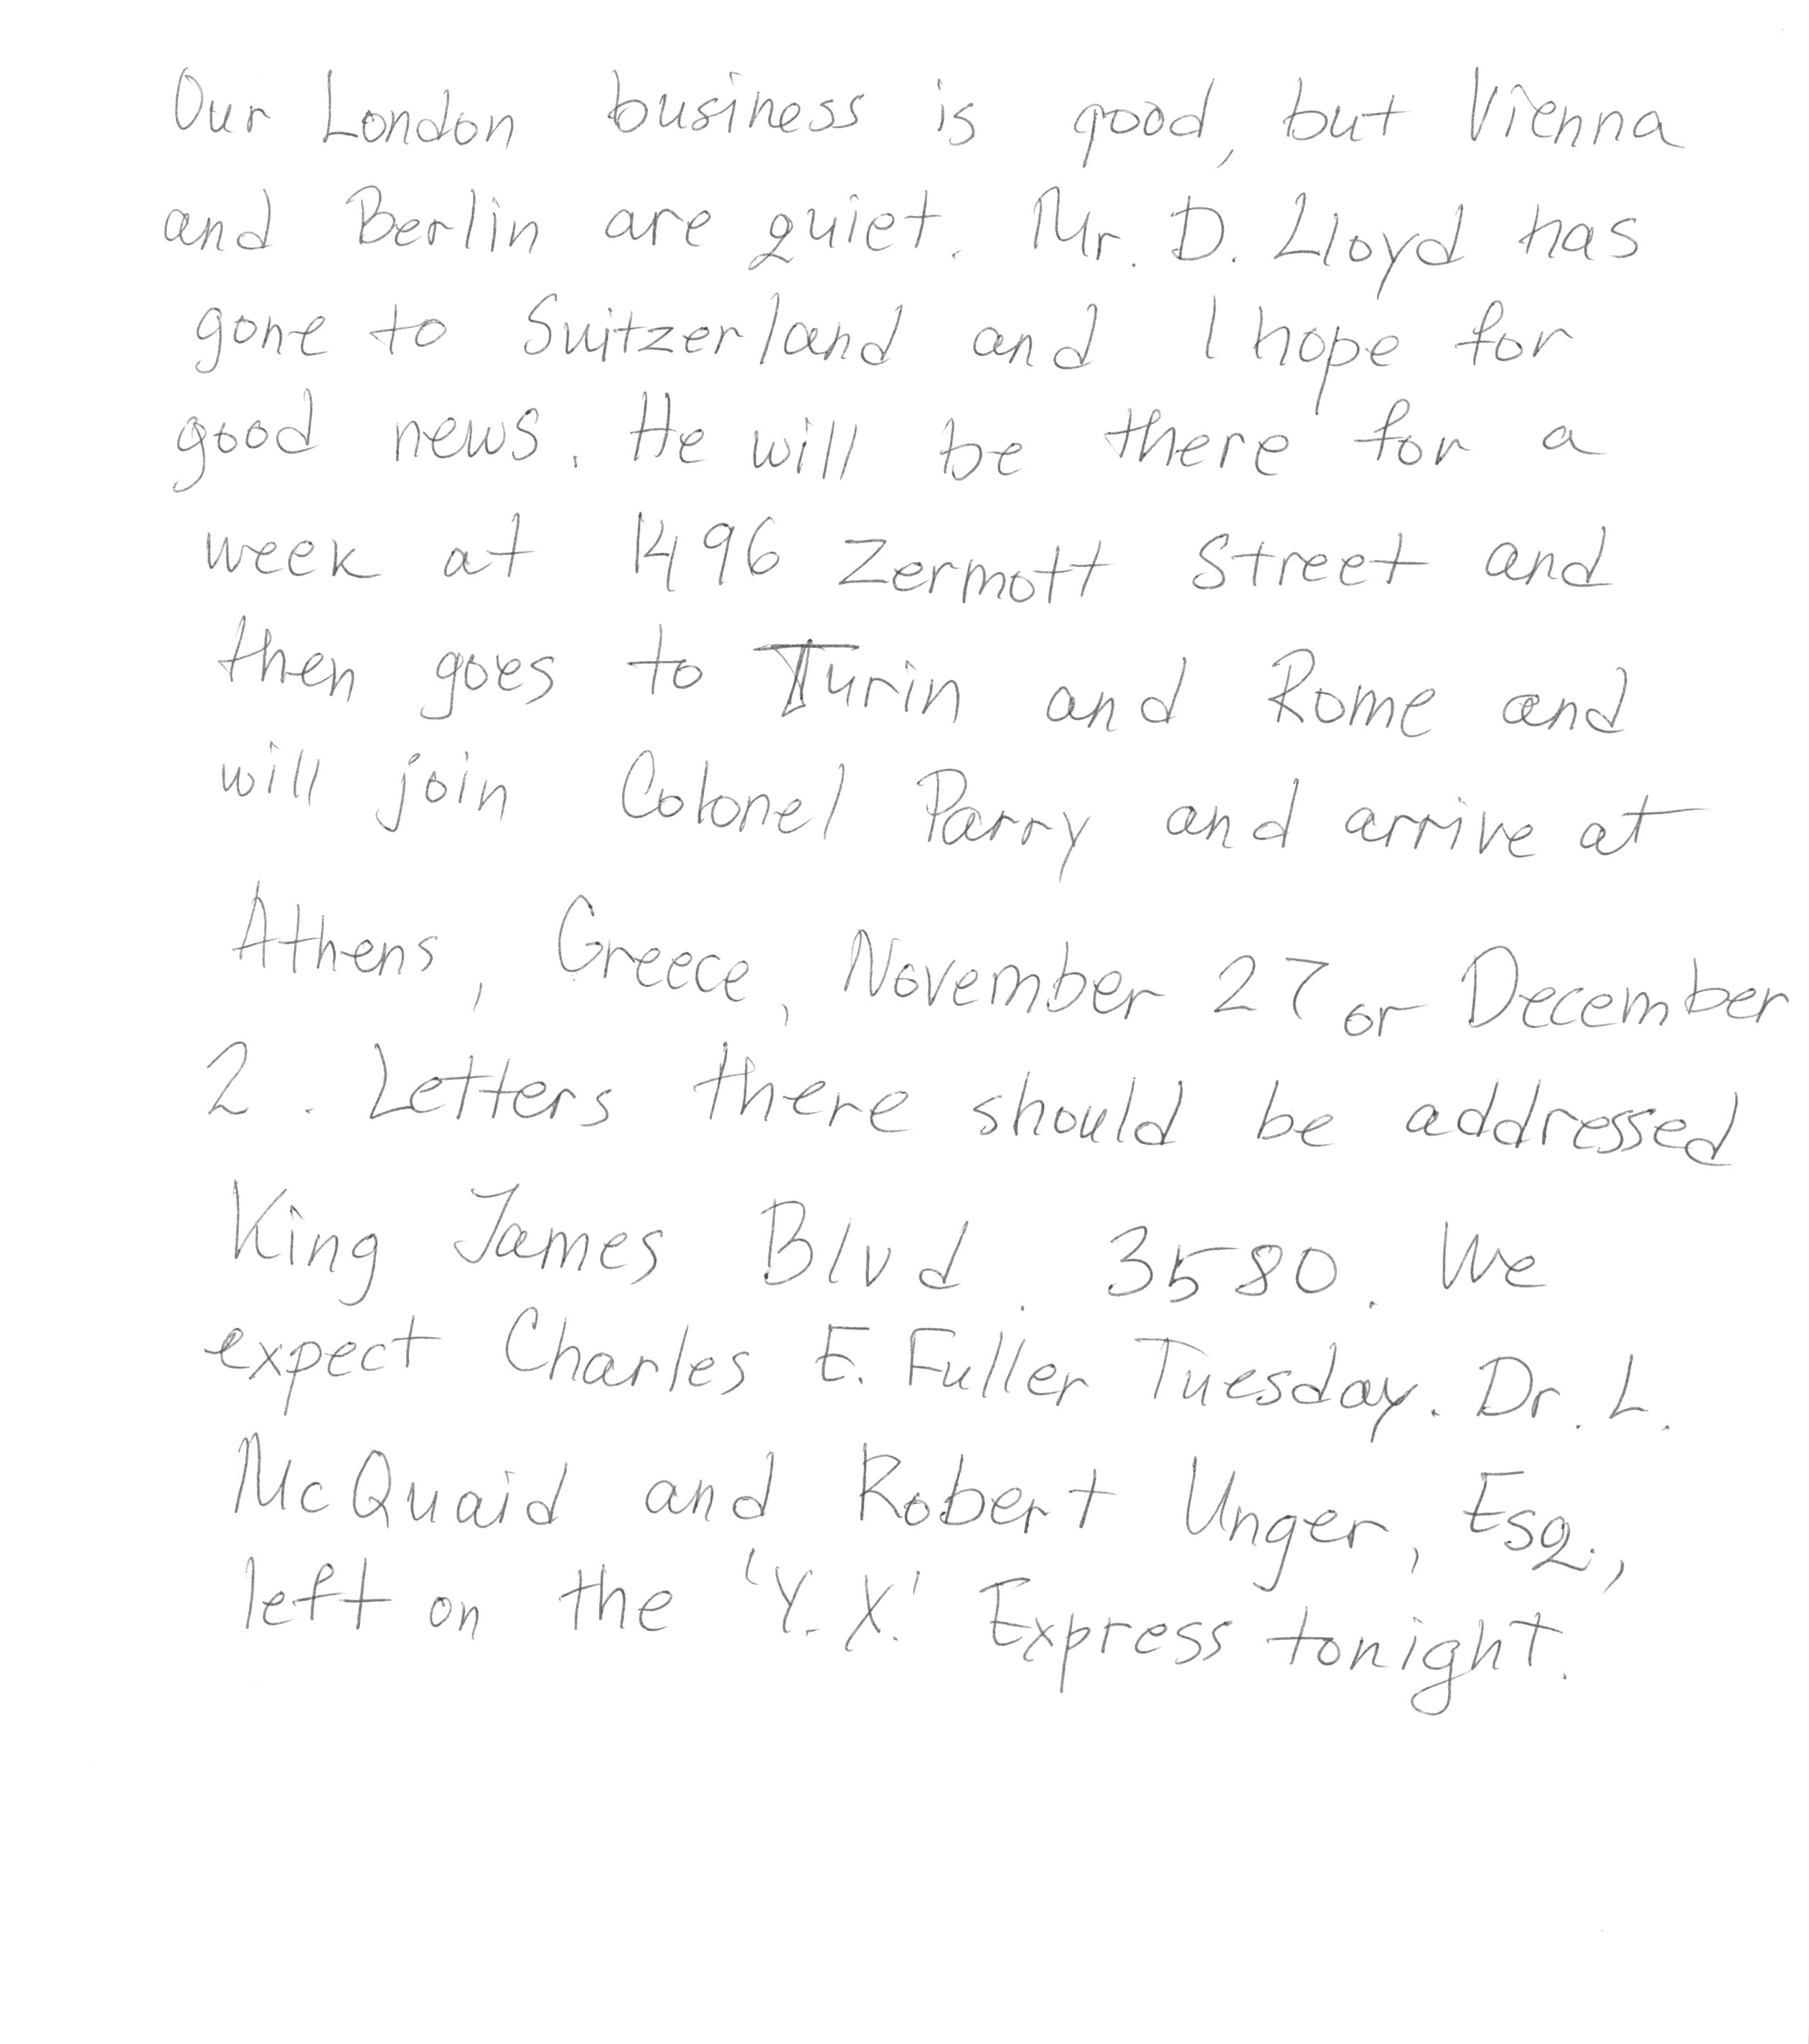 Our London business is good, but Vienna
and Berlin are quiet. Mr. D. Lloyd has
gone to Switzerland and I hope for
good news. He will be there for a
week at 1496 Zermott Street and
then goes to Turin and Rome and
will join Colonel Parry and arrive at
Athens, Greece, November 27 or December
2. Letters there should be addressed
King James Blvd. 3580. We
expect Charles E. Fuller Tuesday. Dr. L.
McQuaid and Robert Unger, Esq.,
left on the 'Y.X.' Express tonight.